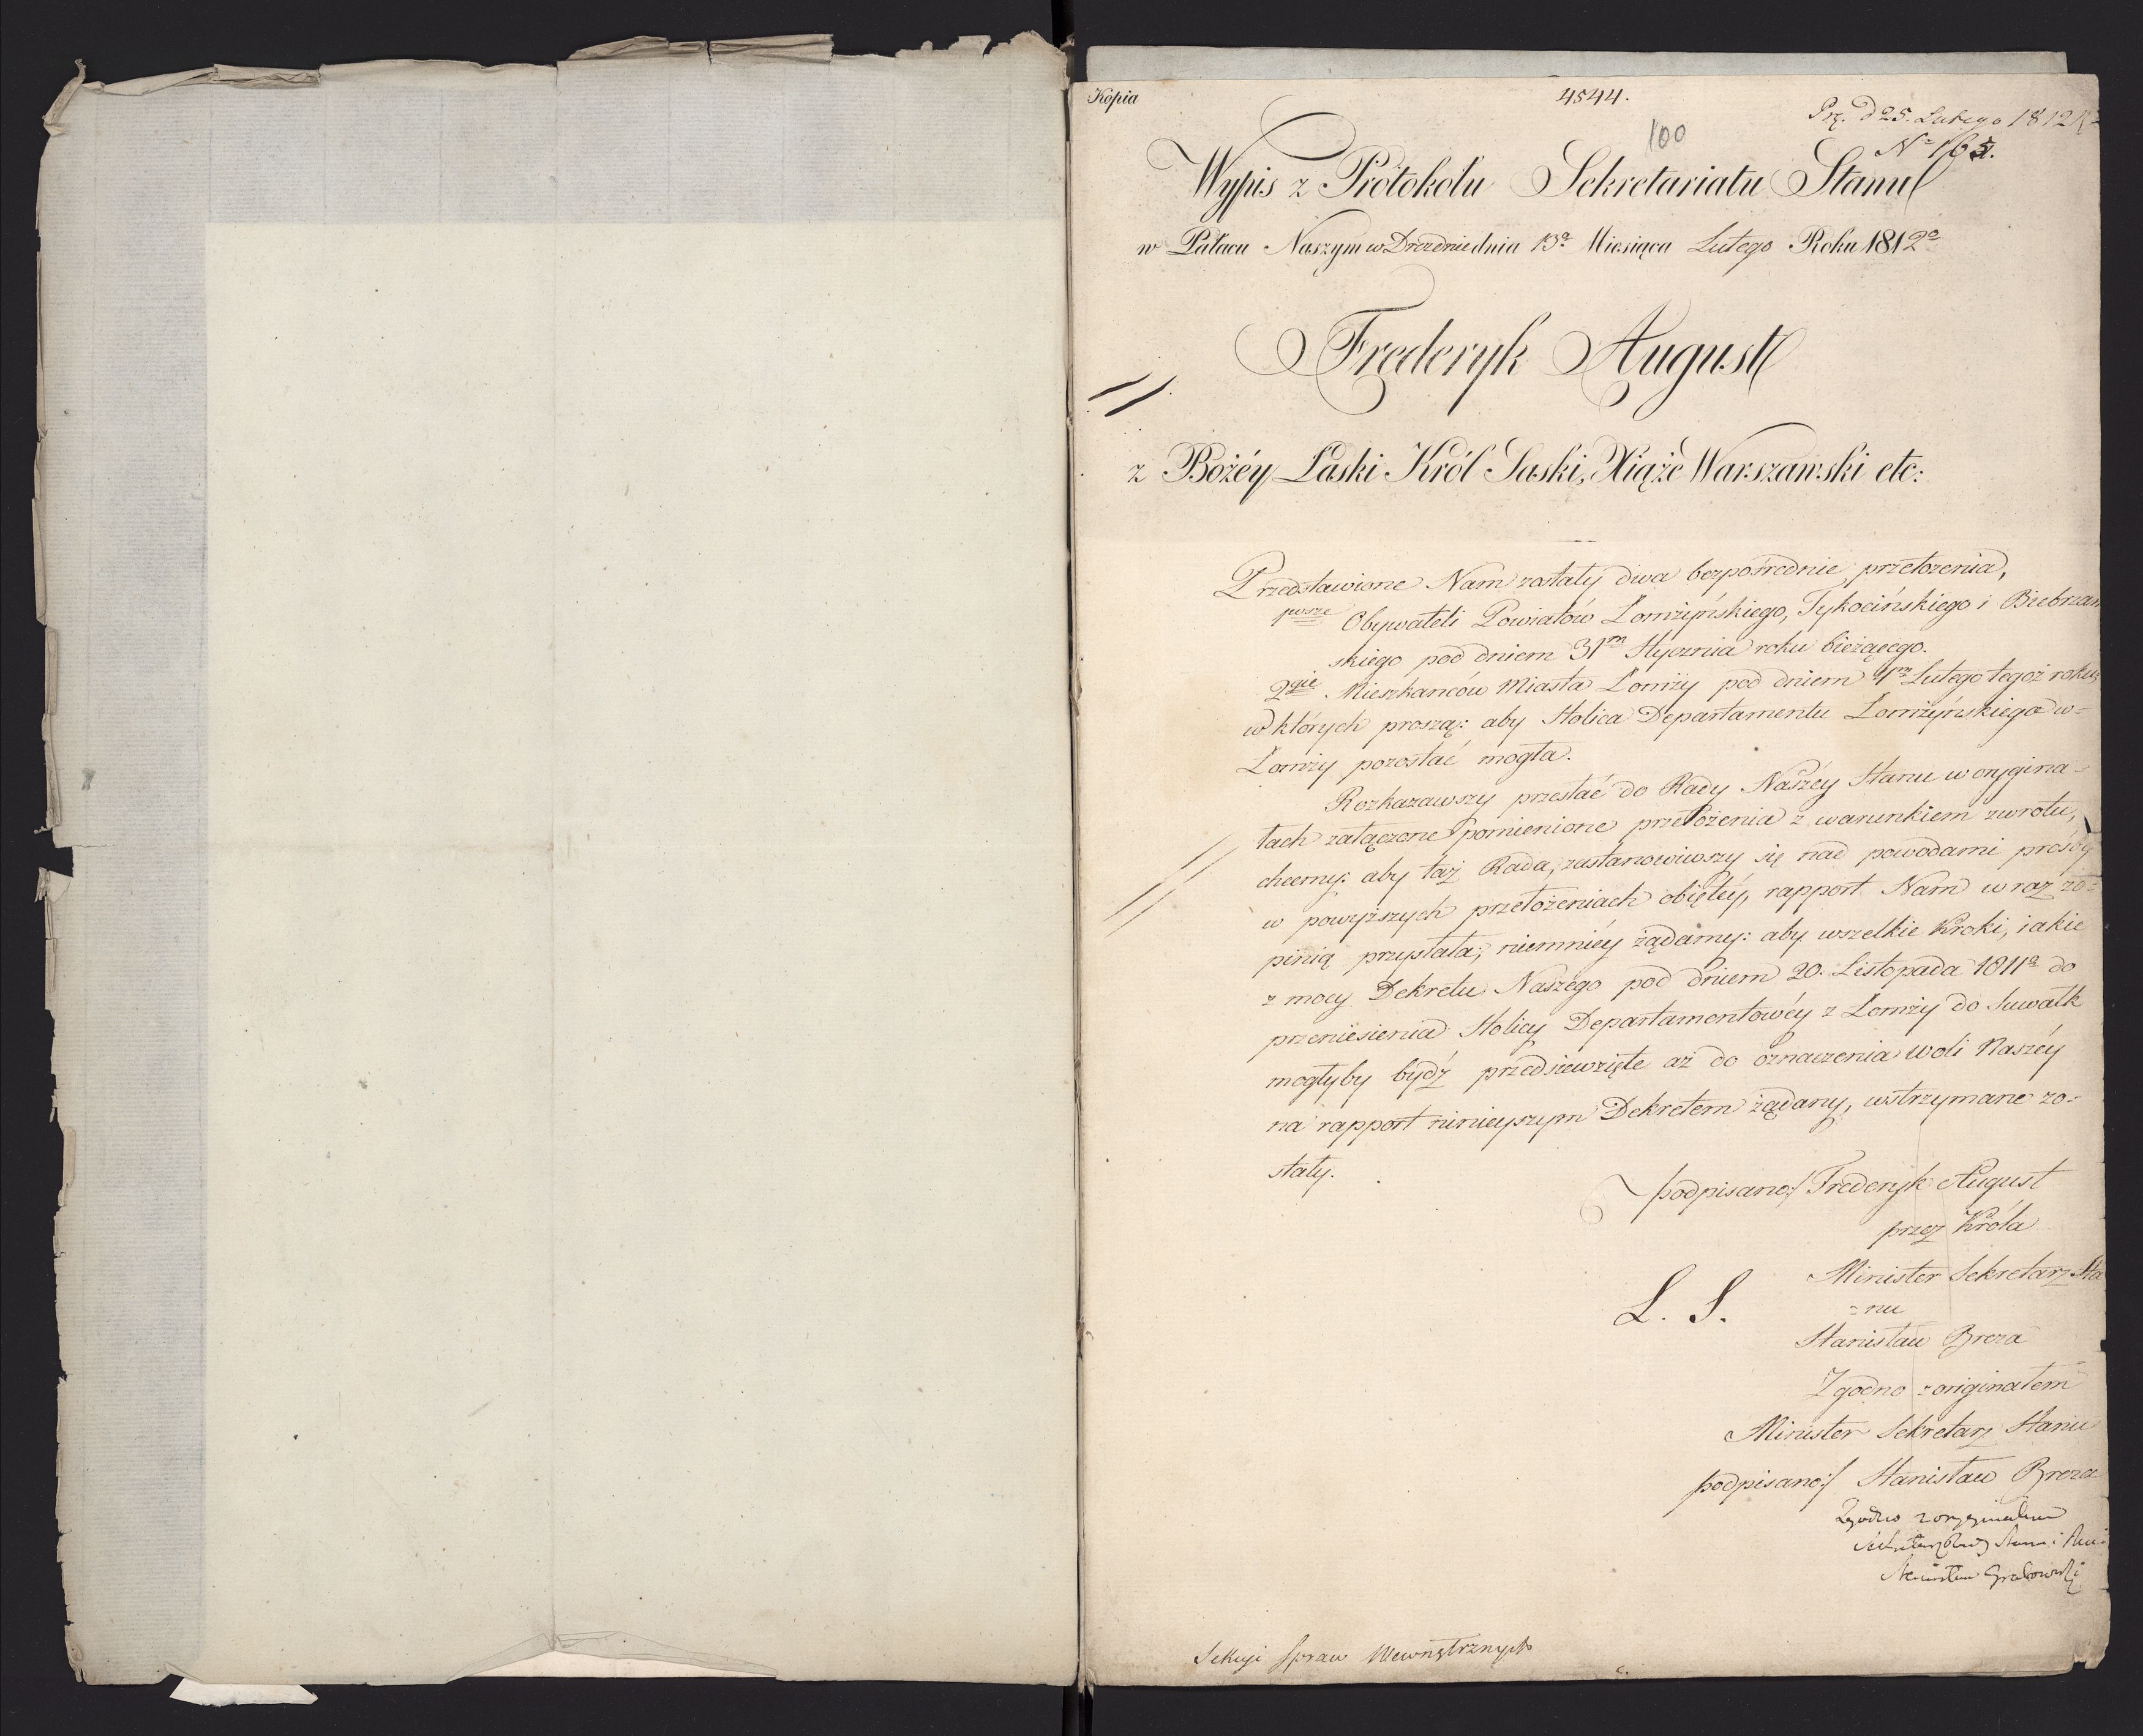 Kopia
4544.
Prz. d 25. Lutego 1812 R
100
No 165.
Wypis z Protokołu Sekretariatu Stanu
w Pałacu Naszym w Dreznie dnia 13o Miesiąca Lutego Roku 1812o
Frederyk August
z Bożéy Łaski Król Saski, Xiąże Warszawski etc:
Przedstawione Nam zostały dwa bezpośrednie przełożenia,
1wsze Obywateli Powiatów Łomżyńskiego, Tykocińskiego i Biebrzań
skiego pod dniem 31m Stycznia roku bieżącego.
2gie Mieszkanców Miasta Łomży pod dniem 1m Lutego tegoż roku,
w których proszą: aby Stolica Departamentu Łomżyńskiego w=
Łomży pozostać mogła.
Rozkazawszy przesłać do Rady Naszéy Stanu w orygina=
łach załączone pomienione przełożenia z warunkiem zwrotu,
chcemy: aby taż Rada, zastanowiwszy się nad powodami prośby
w powyższych przełożeniach obiętéy, rapport Nam wraz zo=
pinią przysłała; niemniéy żądamy: aby wszelkie Kroki, iakie
z mocy Dekretu Naszego pod dniem 20. Listopada 1811o do
przeniesienia Stolicy Departamentowéy z Łomży do Suwałk
mogłyby bydź przedsięwzięte aż do oznaczenia woli Naszéy
na rapport ninieyszym Dekretem żądany, wstrzymane zo=
stały.
podpisano:/ Frederyk August
przez Króla
Minister Sekretarz Sta
=nu
L. S.
Stanisław Breza
Zgodno z originałem
Minister Sekretarz Stanu
podpisano:/ Stanisław Breza
Zgodno z oryginałem
Sekretarz Rady Stanu i Mini
Stanisław Grabowski
Sekcyi Spraw Wewnętrznych